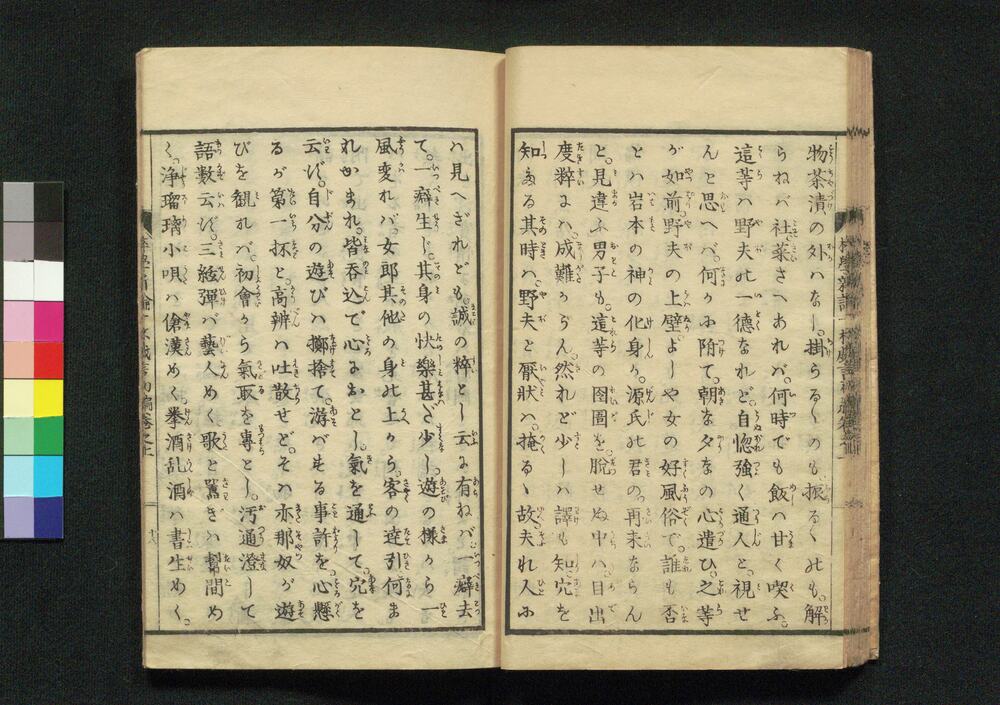 物茶漬の外ハなし。掛らるゝのも、振るゝのも、解
らねバ社、菜さへあれバ、何時でも飯ハ甘く喫ふ。
這等ハ野夫の一徳なれど、自惚強く通人と視せ
んと思へバ、何かに附て、朝な夕なの心遣ひ、之等
が如前野夫の上壁、よしや女の好風俗で、誰も否
とハ岩本の神の化身か、源氏の君の、再来ならん
と、見違ふ男子も、這等の囹圄を、脱せぬ中ハ、目出
度粋にハ、成難からん、然れど少しハ譯も知、穴を
知たる其時ハ、野夫と厭狀ハ、掩るゝ故、夫れ人に
ハ見へざれども、誠の粋とし云に有ねバ、一癖去
て、一癖生じ、其身の快樂甚だ少し、遊の様から一
風変れバ、女郎其他の身の上から、客の達引何ま
れかまれ、皆呑込で心におとし、氣を通して、穴を
云ず、自分の遊びハ擲捨て、游バもる事許を、心懸
るが第一抔と、高辨ハ吐散せど、そハ亦那奴が遊
びを観れバ、初會から氣取を專とし、汚通澄して
語数云ず、三絃彈バ藝人めく、歌と騒ぎハ幇間め
く、浄瑠璃小唄ハ傖漢めく、拳酒乱酒ハ書生めく、